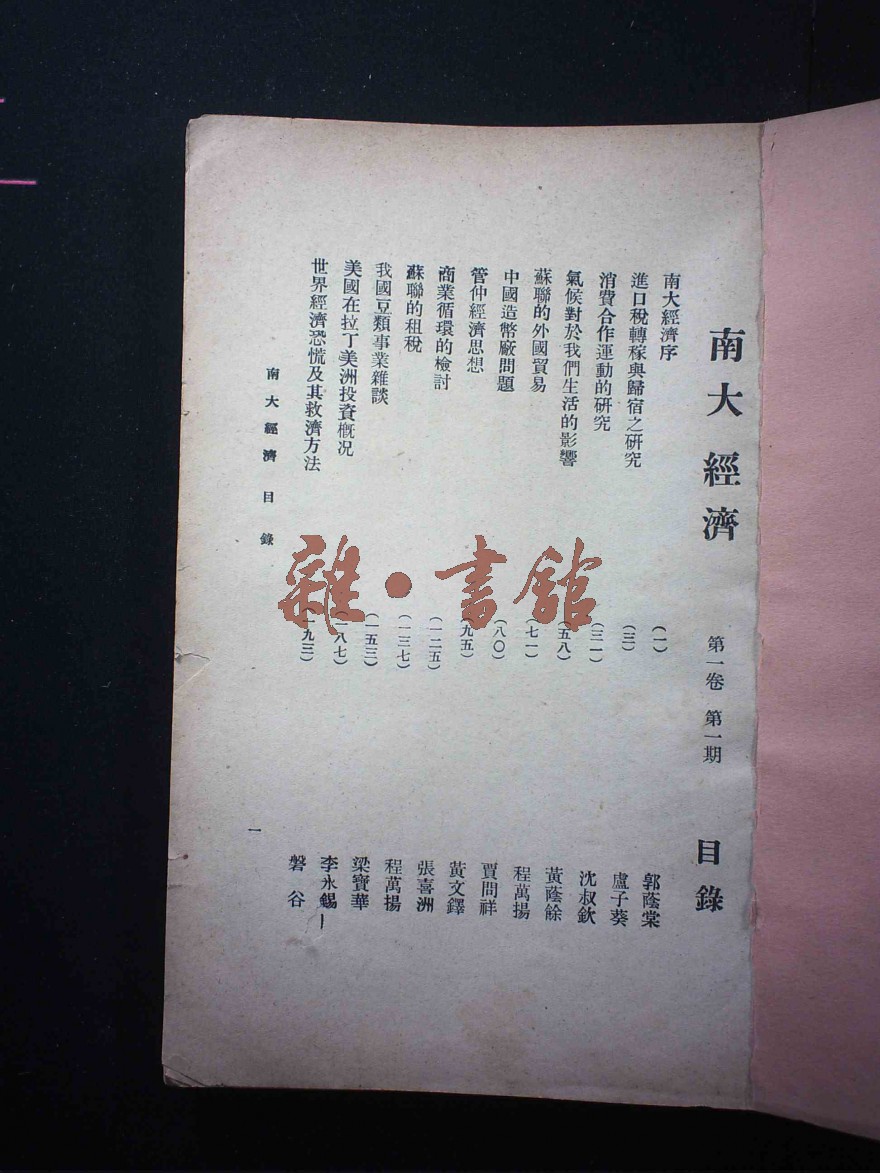 南大經濟 第一卷 第一期 目錄
南大經濟序 (一) 郭蔭棠
進口稅轉稼與歸宿之研究 (三) 盧子葵
消費合作運動的研究 (三一) 沈叔欽
氣候對於我們生活的影響 (五八) 黃蔭餘
蘇聯的外國貿易 (七一) 程萬揚
中國造幣廠問題 (八〇) 賈問祥
管仲經濟思想 (九五) 黃文鐸
商業循環的檢討 (一二五) 張喜洲
蘇聯的租稅 (一三七) 程萬揚
我國豆類事業雜談 (一五三) 梁寶華
美國在拉丁美洲投資概况 (一八七) 李永錫
世界經濟恐慌及其救濟方法 (一九三) 磐谷
南大經濟 目錄 一
雜·書館